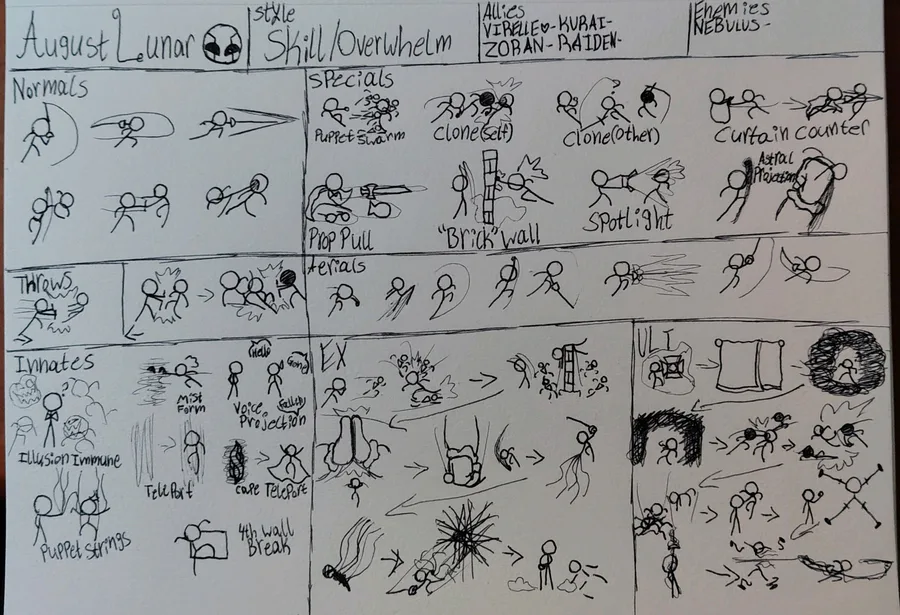 August Lunar
Style
Skill/Overwhelm
Allies
VIRELLE♥-KURAI-
ZORAN-RAIDEN-
Enemies
NEBULUS-
Normals
Specials
Puppet Swarm
Clone(self)
Clone(other)
Curtain Counter
Prop Pull
"Brick" Wall
Spotlight
Astral
Projection
Throws
Aerials
Innates
Illusion Immune
Mist
Form
Hello
Gone
Voice
Projection
Teleport
Cape Teleport
Puppet Strings
4th Wall
Break
EX
ULT